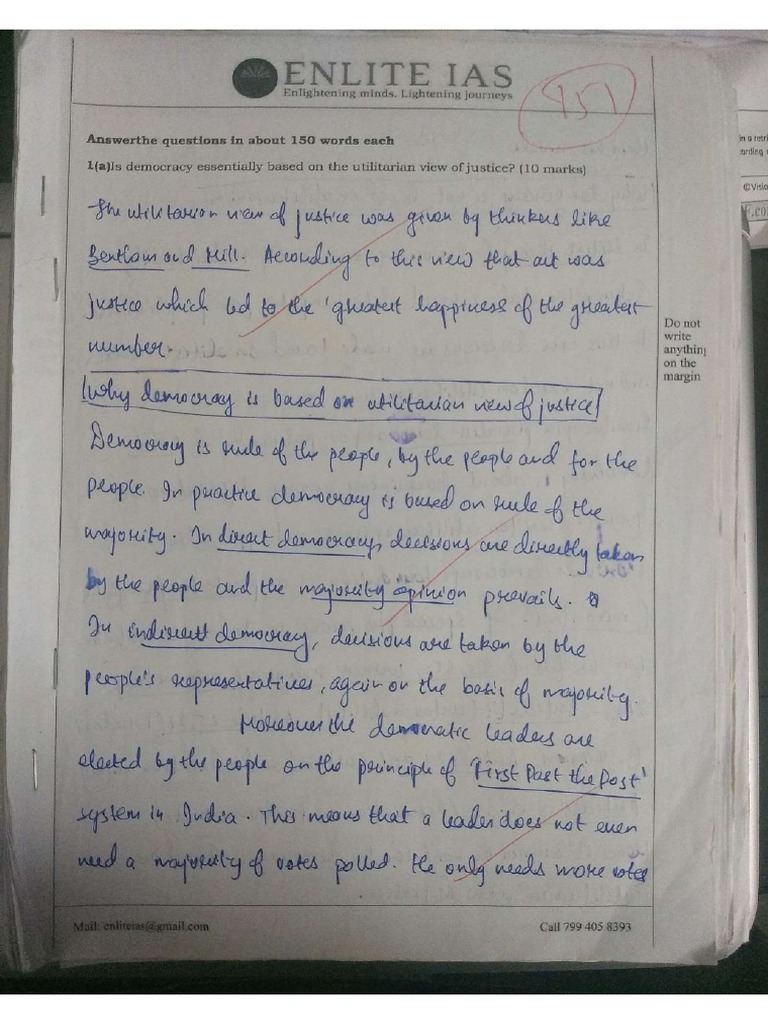 ENLITE IAS
Enlightening minds. Lightening journeys
Answerthe questions in about 150 words each
1(a)Is democracy essentially based on the utilitarian view of justice? (10 marks)
The utilitarian view of justice was given by thinkers like
Bentham and Mill. According to this view that act was
justice which led to the 'greatest happiness of the greatest
number.
Why democracy is based on utilitarian view of justice
Democracy is rule of the people, by the people and for the
people. In practice democracy is based on rule of the
majority. In direct democracy, decisions are directly taken
by the people and the majority opinion prevails.
In indirect democracy, decisions are taken by the
people's representatives, again on the basis of majority.
Moreover the democratic leaders are
elected by the people on the principle of 'First Past the Post'
system in India. This means that a leader does not even
need a majority of votes polled. He only needs more votes
Do not
write
anything
on the
margin
Mail: enliteias@gmail.com
Call 799 405 8393
©Visio